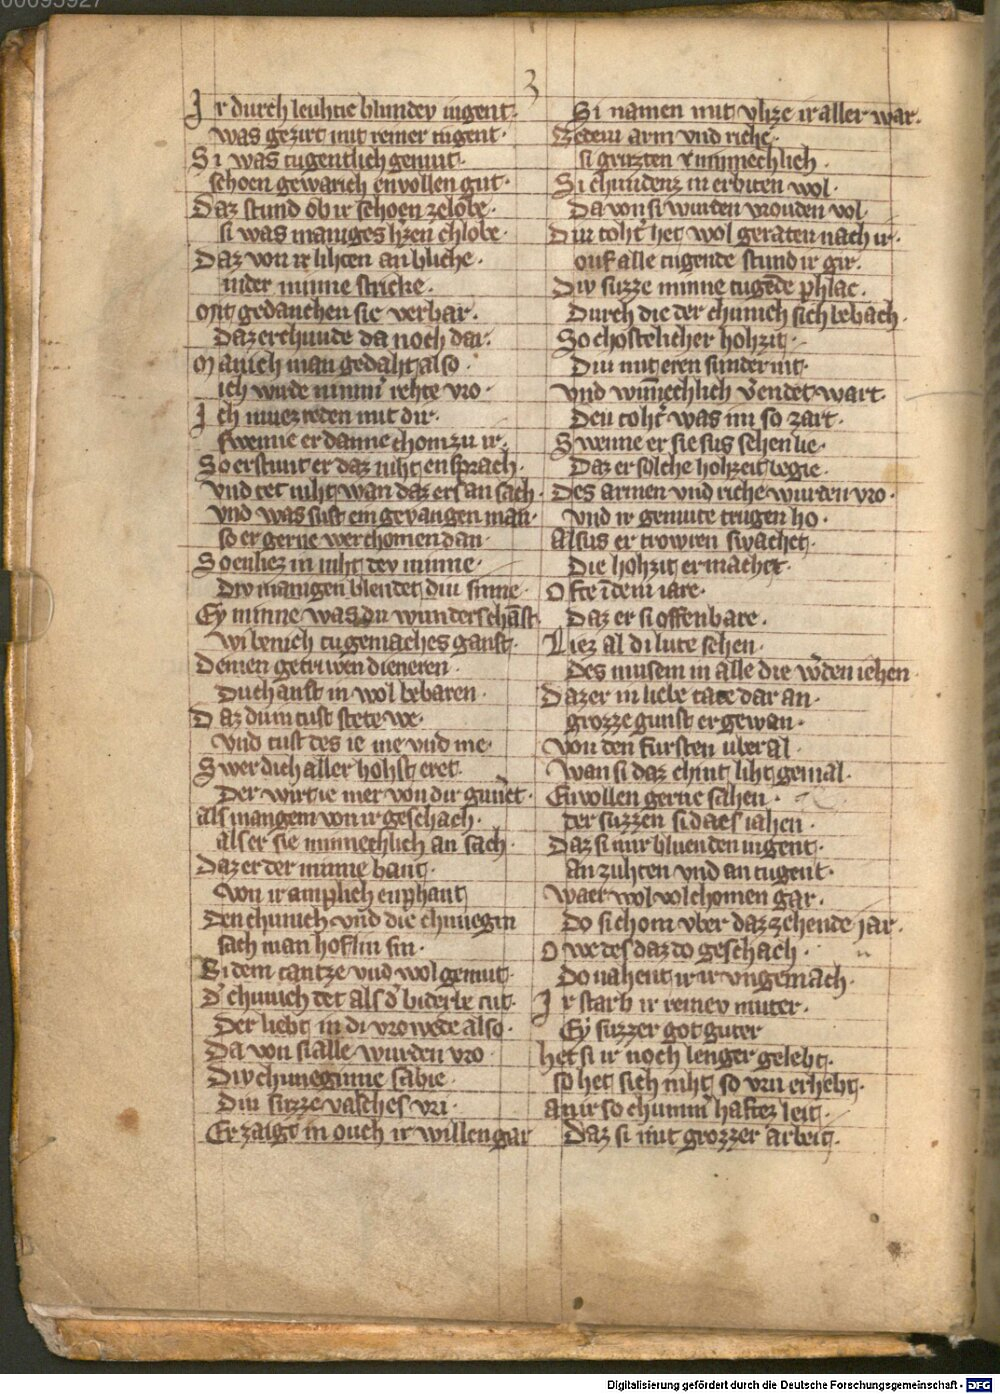 00095927
3
Ir durch leuhtic blundev iugent·
was gezirt mit reiner tugent·
Si was tugentlich gemut·
schoen gewarich envollen gut·
Daz stund ob ir schoen zelobe·
si was maniges hzen chlobe·
Daz von ir lihten an bliche·
inder minne striche·
Mit gedanchen sie verbar·
Daz er chunde da noch dar·
Manich man gedaht also·
ich wurde nimmer rehte vro·
Ich muez reden mit dir·
swenne er danne chom zu ir·
So erstunt er daz niht ensprach·
vnd tet niht wan daz ers an sach·
vnd was sust ein gevangen man·
so er gerne wer chomen dan·
So enliez in niht dev minne·
Div manigen blendet diu sinne·
Ey minne was du wunder schanst
wi benich du gemaches ganst·
Deinen getriwen dieneren·
Du chanst in wol bebaren·
Daz du in tust stete we·
vnd tust des ie me vnd me·
Swer dich aller hohst eret·
Der wirt ie mer von dir guneret·
als mangem von ir geschach·
als er sie minnechlich an sach·
Daz er der minne bant·
von ir amplich enphant
Den chunich vnd die chunegin
sach man hoflin sin·
Bi dem tantze vnd wol gemut·
D' chunich tet als d' biderbe tut·
Der liebt in di vrowede also·
Da von si alle wurden vro
Div chuneginne sabie·
Diu suzze valsches vri·
Er zaigt in ouch ir willen gar
Si namen mit vlize ir aller war·
Bedeiu arm vnd riche·
si gruzten minnechlich·
Si chundenz in erbiten wol·
Da von si wurden vrouden vol·
Diu toht het wol geraten nach ir·
ouf alle tugende stund ir gir·
Div suzze minne tugede phlac·
Durch die der chunich sich bebach·
So chostelicher hohzit·
Diu mit eren sunder nit·
vnd winnechlich vendet wart·
Deu toht' was im so zart·
Swenne er sie sus sehen lie·
Daz er solche hohzeit begie·
Des armen vnd riche wurden vro·
vnd ir gemute trugen ho·
Alsus er trowren swachet·
Die hohzit er machet·
Ofte idem iare·
Daz er si offenbare·
Liez al di lute sehen·
Des musem in alle die w'den iehen
Daz er in liebe tate dar an·
grozze gunst er gewan·
von den fursten uberal·
wan si daz chint liht gemal·
Envollen gerne sahen·
der suzzen si daes iahen·
Daz si mir bluenden iugent·
an zuhten vnd an tugent·
waer wol volchomen gar·
Do si chom vber daz zehende jar·
O we des daz do geschach·
Do nahent ir ir vngemach·
Ir starb ir reinev muter·
Ey suzzer got guter
het si ir noch lenger gelebt·
so het sich niht so vru erhebt·
an ir so chummerhaftez leit·
Daz si mit grozzer arbeit·
Digitalisierung gefördert durch die Deutsche Forschungsgemeinschaft - DFG